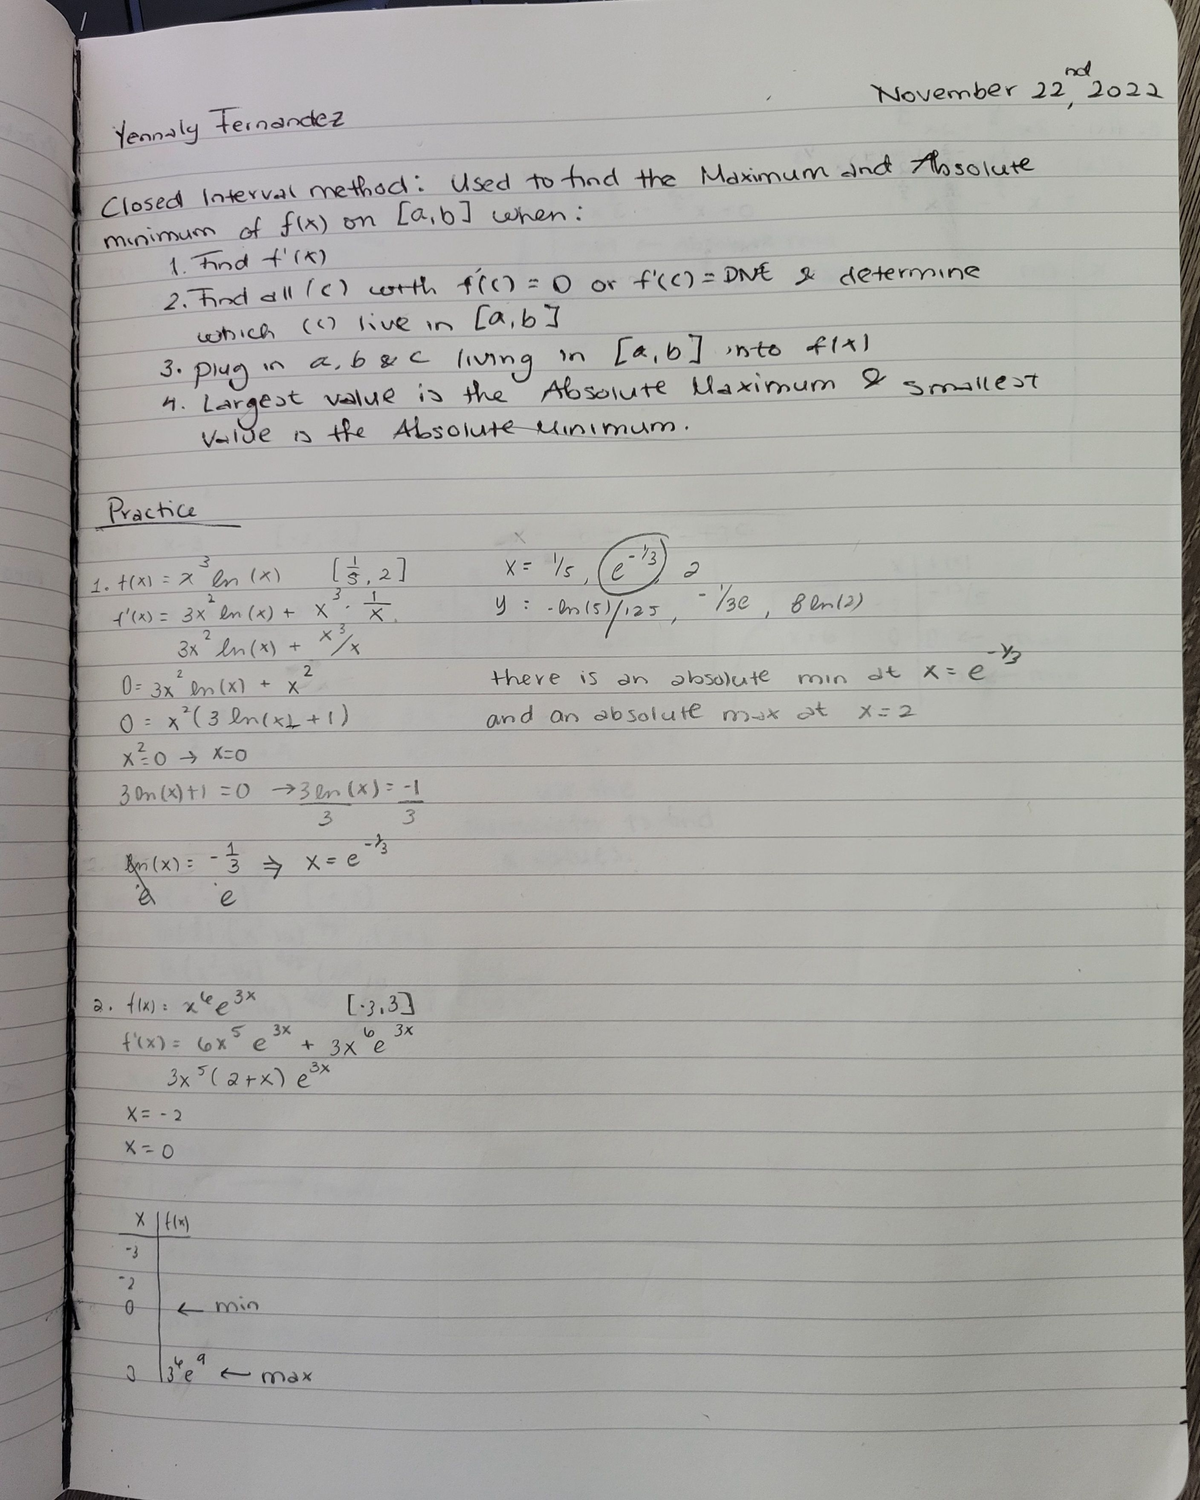 November 22nd, 2022
Yennaly Fernandez
Closed Interval method: Used to find the Maximum and Absolute
minimum of f(x) on [a,b] when:
1. Find f'(x)
2. Find all (c) with f'(c) = 0 or f'(c) = DNE & determine
which (c) live in [a,b]
3. plug in a, b & c living in [a,b] into f(x)
4. Largest value is the Absolute Maximum & smallest
value is the Absolute Minimum.
Practice
1. f(x) = x³ ln(x) [1/5, 2]
f'(x) = 3x² ln(x) + x³ · 1/x
3x² ln(x) + x³/x
0 = 3x² ln(x) + x²
0 = x²(3 ln(x) + 1)
x² = 0 → x=0
3 ln(x)+1 = 0 → 3 ln(x) = -1
3 3
ln(x) = -1/3 ⇒ x = e^-1/3
e e
x = 1/5, e^-1/3, 2
y : -ln(5)/125, -1/3e, 8 ln(2)
there is an absolute min at x = e^-1/3
and an absolute max at x = 2
2. f(x) = x⁶e^3x [-3,3]
f'(x) = 6x⁵ e^3x + 3x⁶ e^3x
3x⁵(2+x) e^3x
x = -2
x = 0
x | f(x)
-3
-2
0 ← min
3 | 3⁶e⁹ ← max